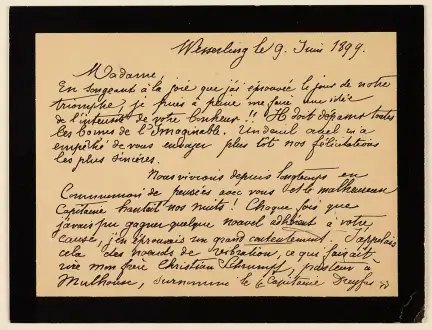 Wesserling le 9. Juin 1899.
Madame,
En songeant à la joie que j'ai éprouvée le jour de notre
triomphe, je puis à peine me faire une idée
de l'intensité de votre bonheur!! Il doit dépasser toutes
les bornes de l'imaginable. Un deuil cruel m'a
empêché de vous envoyer plus tôt nos félicitations
les plus sincères.
Nous vivions depuis longtemps en
Communion de pensées avec vous et le malheureux
Capitaine hantait nos nuits! Chaque fois que
j'avais pu gagner quelque nouvel adhérent à votre
cause, j'en éprouvais un grand contentement. J'appelais
cela des noeuds de vibration, ce qui faisait
rire mon frère Christian Schrumpf, pasteur à
Mulhouse, surnommé le Capitaine Dreyfus